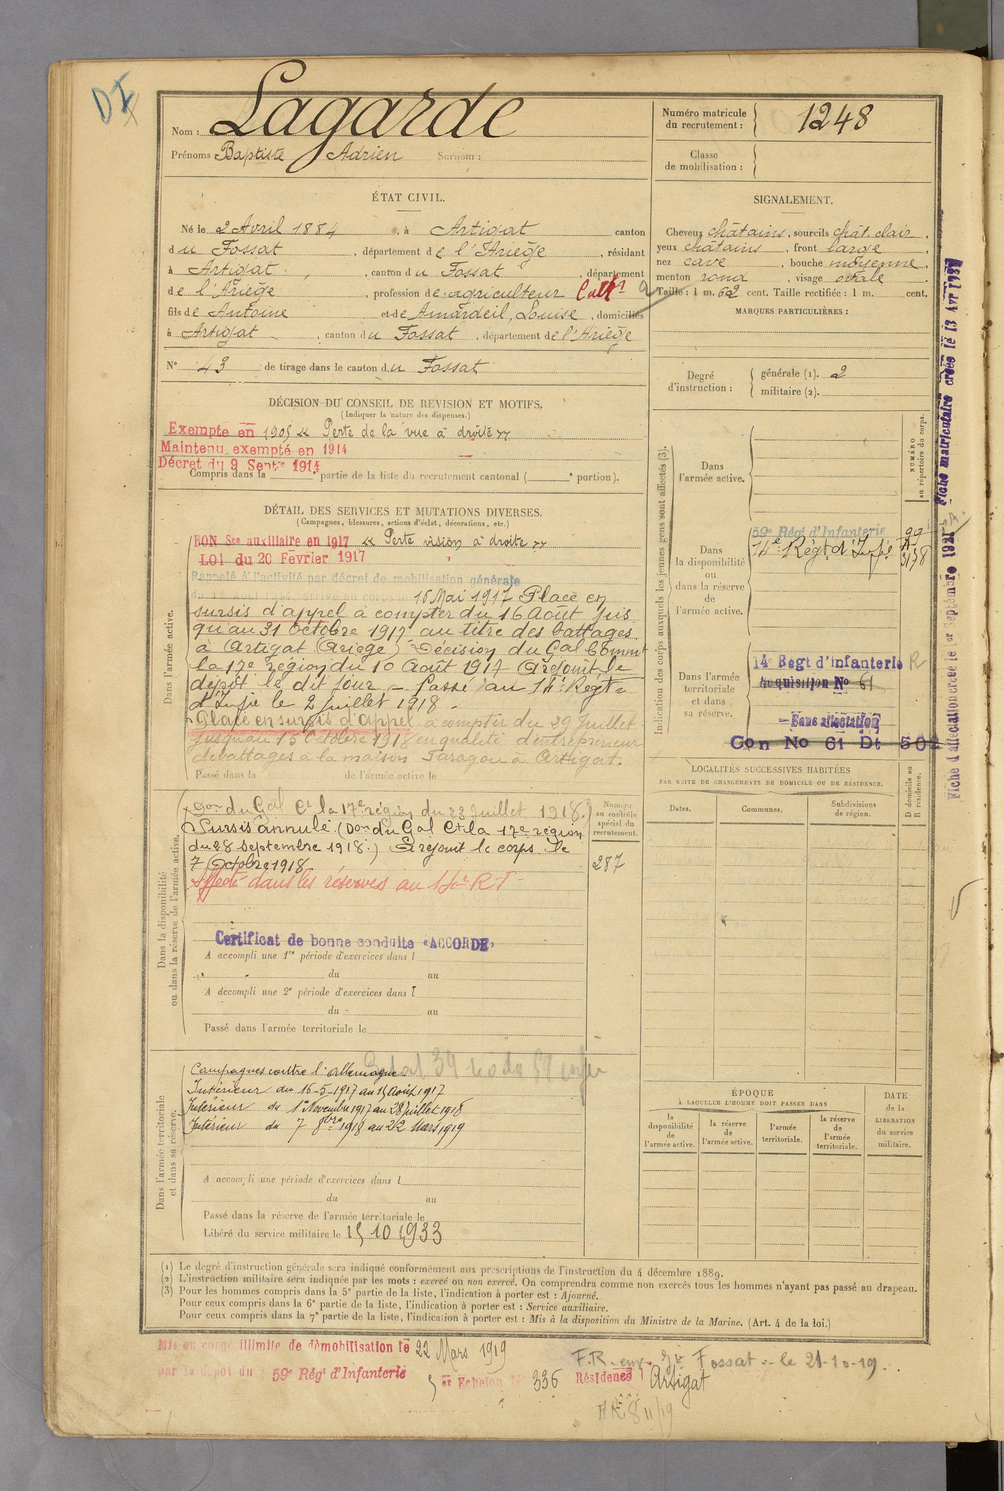 DI
Nom : Lagarde
Prénoms Baptiste Adrien Surnom :
Numéro matricule du recrutement : 1248
Classe de mobilisation :
ÉTAT CIVIL.
Né le 2 Avril 1884 à Artigat canton
du Fossat, département de l'Ariège, résidant
à Artigat, canton du Fossat, département
de l'Ariège, profession de agriculteur Cult
fils de Antoine et de Amardeil, Louise, domiciliés
à Artigat, canton du Fossat, département de l'Ariège
N° 43 de tirage dans le canton du Fossat
SIGNALEMENT.
Cheveux châtains, sourcils chât. clair,
yeux châtains, front large
nez cave, bouche moyenne,
menton rond, visage ovale.
Taille : 1 m. 62 cent. Taille rectifiée : 1 m. cent.
MARQUES PARTICULIÈRES :
Degré d'instruction : générale (1). 2
militaire (2).
DÉCISION DU CONSEIL DE REVISION ET MOTIFS.
(Indiquer la nature des dispenses.)
Exempté en 1905 « Perte de la vue à droite »
Maintenu exempté en 1914
Décret du 9 Septre 1914
Compris dans la e partie de la liste du recrutement cantonal ( e portion).
DÉTAIL DES SERVICES ET MUTATIONS DIVERSES.
(Campagnes, blessures, actions d'éclat, décorations, etc.)
Dans l'armée active.
BON Sce auxiliaire en 1917 « Perte vision à droite »
LOI du 20 Février 1917
Rappelé à l'activité par décret de mobilisation générale
16 Mai 1917 Placé en
sursis d'appel à compter du 16 Août jus
qu'au 31 Octobre 1917 au titre des battages
à Artigat (Ariège) Décision du Gal Commt
la 17e région du 10 Août 1917 Arejoint le
dépôt le dit jour. Passé au 14e Regt
d'Infie le 2 juillet 1918.
Placé en sursis d'appel à compter du 29 Juillet
jusqu'au 15 Octobre 1918 en qualité d'entrepreneur
de battages à la maison Taragou à Artigat.
Passé dans la de l'armée active le
Dans la disponibilité ou dans la réserve de l'armée active.
(Don du Gal Ct la 17e région du 23 Juillet 1918.)
Sursis annulé (Don du Gal Ct la 17e région
du 28 septembre 1918.) Arejoint le corps le
7 Octobre 1918
Affecté dans les réserves au 14e R I
Numéro au contrôle spécial du recrutement.
287
Certificat de bonne conduite «ACCORDE»
A accompli une 1re période d'exercices dans l
du au
A accompli une 2e période d'exercices dans l
du au
Passé dans l'armée territoriale le
Dans l'armée territoriale et dans sa réserve.
Campagnes contre l'allemagne
Intérieur du 16-5-1917 au 15 Août 1917
Intérieur du 1er Novembre 1917 au 28 juillet 1918
Intérieur du 7 8bre 1918 au 22 Mars 1919
A accompli une période d'exercices dans l
du au
Passé dans la réserve de l'armée territoriale le
Libéré du service militaire le 15 10 1933
Indication des corps auxquels les jeunes gens sont affectés (3).
NUMÉRO au répertoire du corps.
Dans l'armée active.
Dans la disponibilité ou dans la réserve de l'armée active.
59e Régt d'Infanterie
14e Régt d'Infie
Dans l'armée territoriale et dans sa réserve.
14e Regt d'Infanterie R
Acquisition No 61
Sans affectation
Con No 61 Dt 50
LOCALITÉS SUCCESSIVES HABITÉES
PAR SUITE DE CHANGEMENTS DE DOMICILE OU DE RÉSIDENCE.
Dates. Communes. Subdivisions de région.
D domicile ou R résidence.
ÉPOQUE
À LAQUELLE L'HOMME DOIT PASSER DANS
la disponibilité de l'armée active.
la réserve de l'armée active.
l'armée territoriale.
la réserve de l'armée territoriale.
DATE de la LIBÉRATION du service militaire.
Fiche matriculaire créée le 13 Avr 193
Fiche d'affectation créée le 1er Septembre 192
(1) Le degré d'instruction générale sera indiqué conformément aux prescriptions de l'instruction du 4 décembre 1889.
(2) L'instruction militaire sera indiquée par les mots : exercé ou non exercé. On comprendra comme non exercés tous les hommes n'ayant pas passé au drapeau.
(3) Pour les hommes compris dans la 5e partie de la liste, l'indication à porter est : Ajourné.
Pour ceux compris dans la 6e partie de la liste, l'indication à porter est : Service auxiliaire.
Pour ceux compris dans la 7e partie de la liste, l'indication à porter est : Mis à la disposition du Ministre de la Marine. (Art. 4 de la loi.)
Mis en congé illimité de démobilisation le 22 Mars 1919
par le dépôt du 59e Régt d'Infanterie
Echelon N° 336 Résidence Artigat
F.R. env. Gie Fossat le 21-10-19.